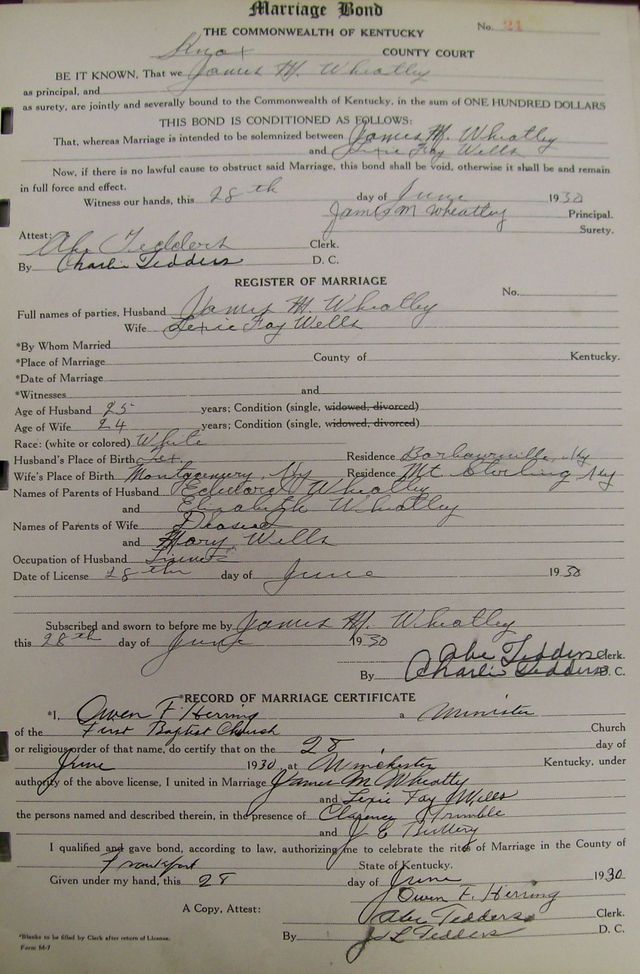 Marriage Bond
No. 21
THE COMMONWEALTH OF KENTUCKY
Knox COUNTY COURT
BE IT KNOWN, That we James M. Wheatley
as principal, and
as surety, are jointly and severally bound to the Commonwealth of Kentucky, in the sum of ONE HUNDRED DOLLARS
THIS BOND IS CONDITIONED AS FOLLOWS:
That, whereas Marriage is intended to be solemnized between James M. Wheatley
and Lexie Fay Wells
Now, if there is no lawful cause to obstruct said Marriage, this bond shall be void, otherwise it shall be and remain
in full force and effect.
Witness our hands, this 28th day of June 1930
James M Wheatley Principal.
Surety.
Attest:
Abe Tedders Clerk.
By Charlie Tedders D. C.
REGISTER OF MARRIAGE
No.
Full names of parties, Husband James M. Wheatley
Wife Lexie Fay Wells
*By Whom Married
*Place of Marriage County of Kentucky.
*Date of Marriage
*Witnesses and
Age of Husband 25 years; Condition (single, widowed, divorced)
Age of Wife 24 years; Condition (single, widowed, divorced)
Race: (white or colored) White
Husband's Place of Birth Residence Barbourville, Ky
Wife's Place of Birth Montgomery, Ky Residence Mt Sterling Ky
Names of Parents of Husband Edward Wheatley
and Elizabeth Wheatley
Names of Parents of Wife
and Mary Wells
Occupation of Husband
Date of License 28th day of June 1930
Subscribed and sworn to before me by James M. Wheatley
this 28th day of June 1930
Abe Tedders Clerk.
By Charlie Tedders D. C.
*RECORD OF MARRIAGE CERTIFICATE
*I, Owen F. Herring a Minister
of the First Baptist Church Church
or religious order of that name, do certify that on the 28 day of
June 1930, at Winchester Kentucky, under
authority of the above license, I united in Marriage James M. Wheatly
and Lexie Fay Wells
the persons named and described therein, in the presence of Clarency Trimble
and J E Buttery
I qualified and gave bond, according to law, authorizing me to celebrate the rites of Marriage in the County of
Frankfort State of Kentucky.
Given under my hand, this 28 day of June 1930
Owen F. Herring
A Copy, Attest: Abe Tedders Clerk.
By J L Tedders D. C.
*Blanks to be filled by Clerk after return of License.
Form M-7